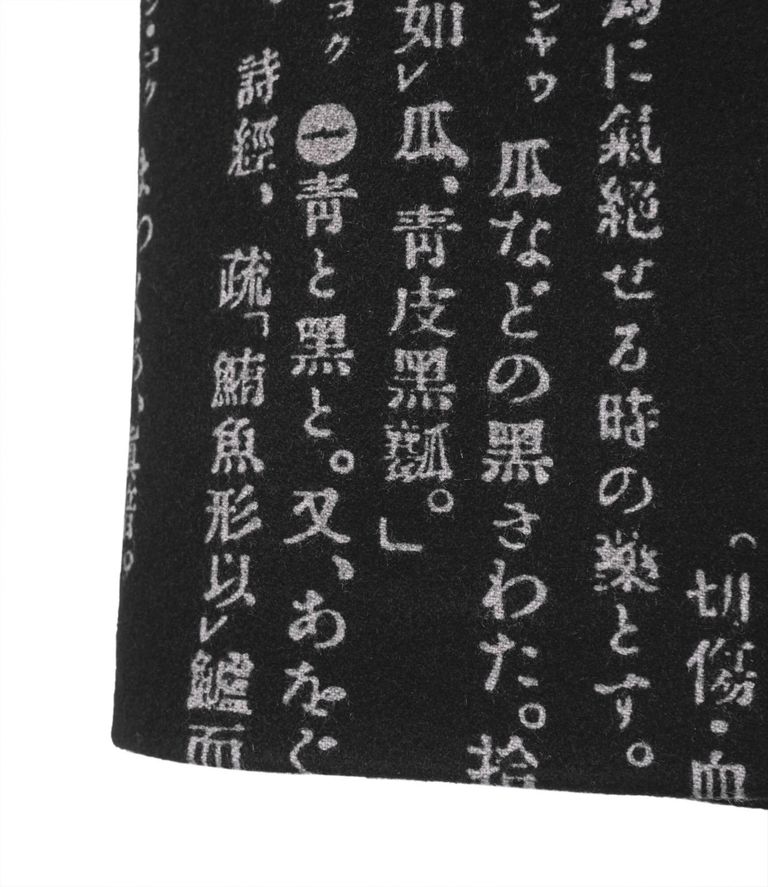 （切傷・血
為に氣絕せる時の藥とす。
シャウ 瓜などの黑さわた。拾
如レ瓜、青皮黑瓤。」
コク ㊀青と黑と。又、あをぐ
詩經、疏「鮪魚形似レ鱣而
ン・コク